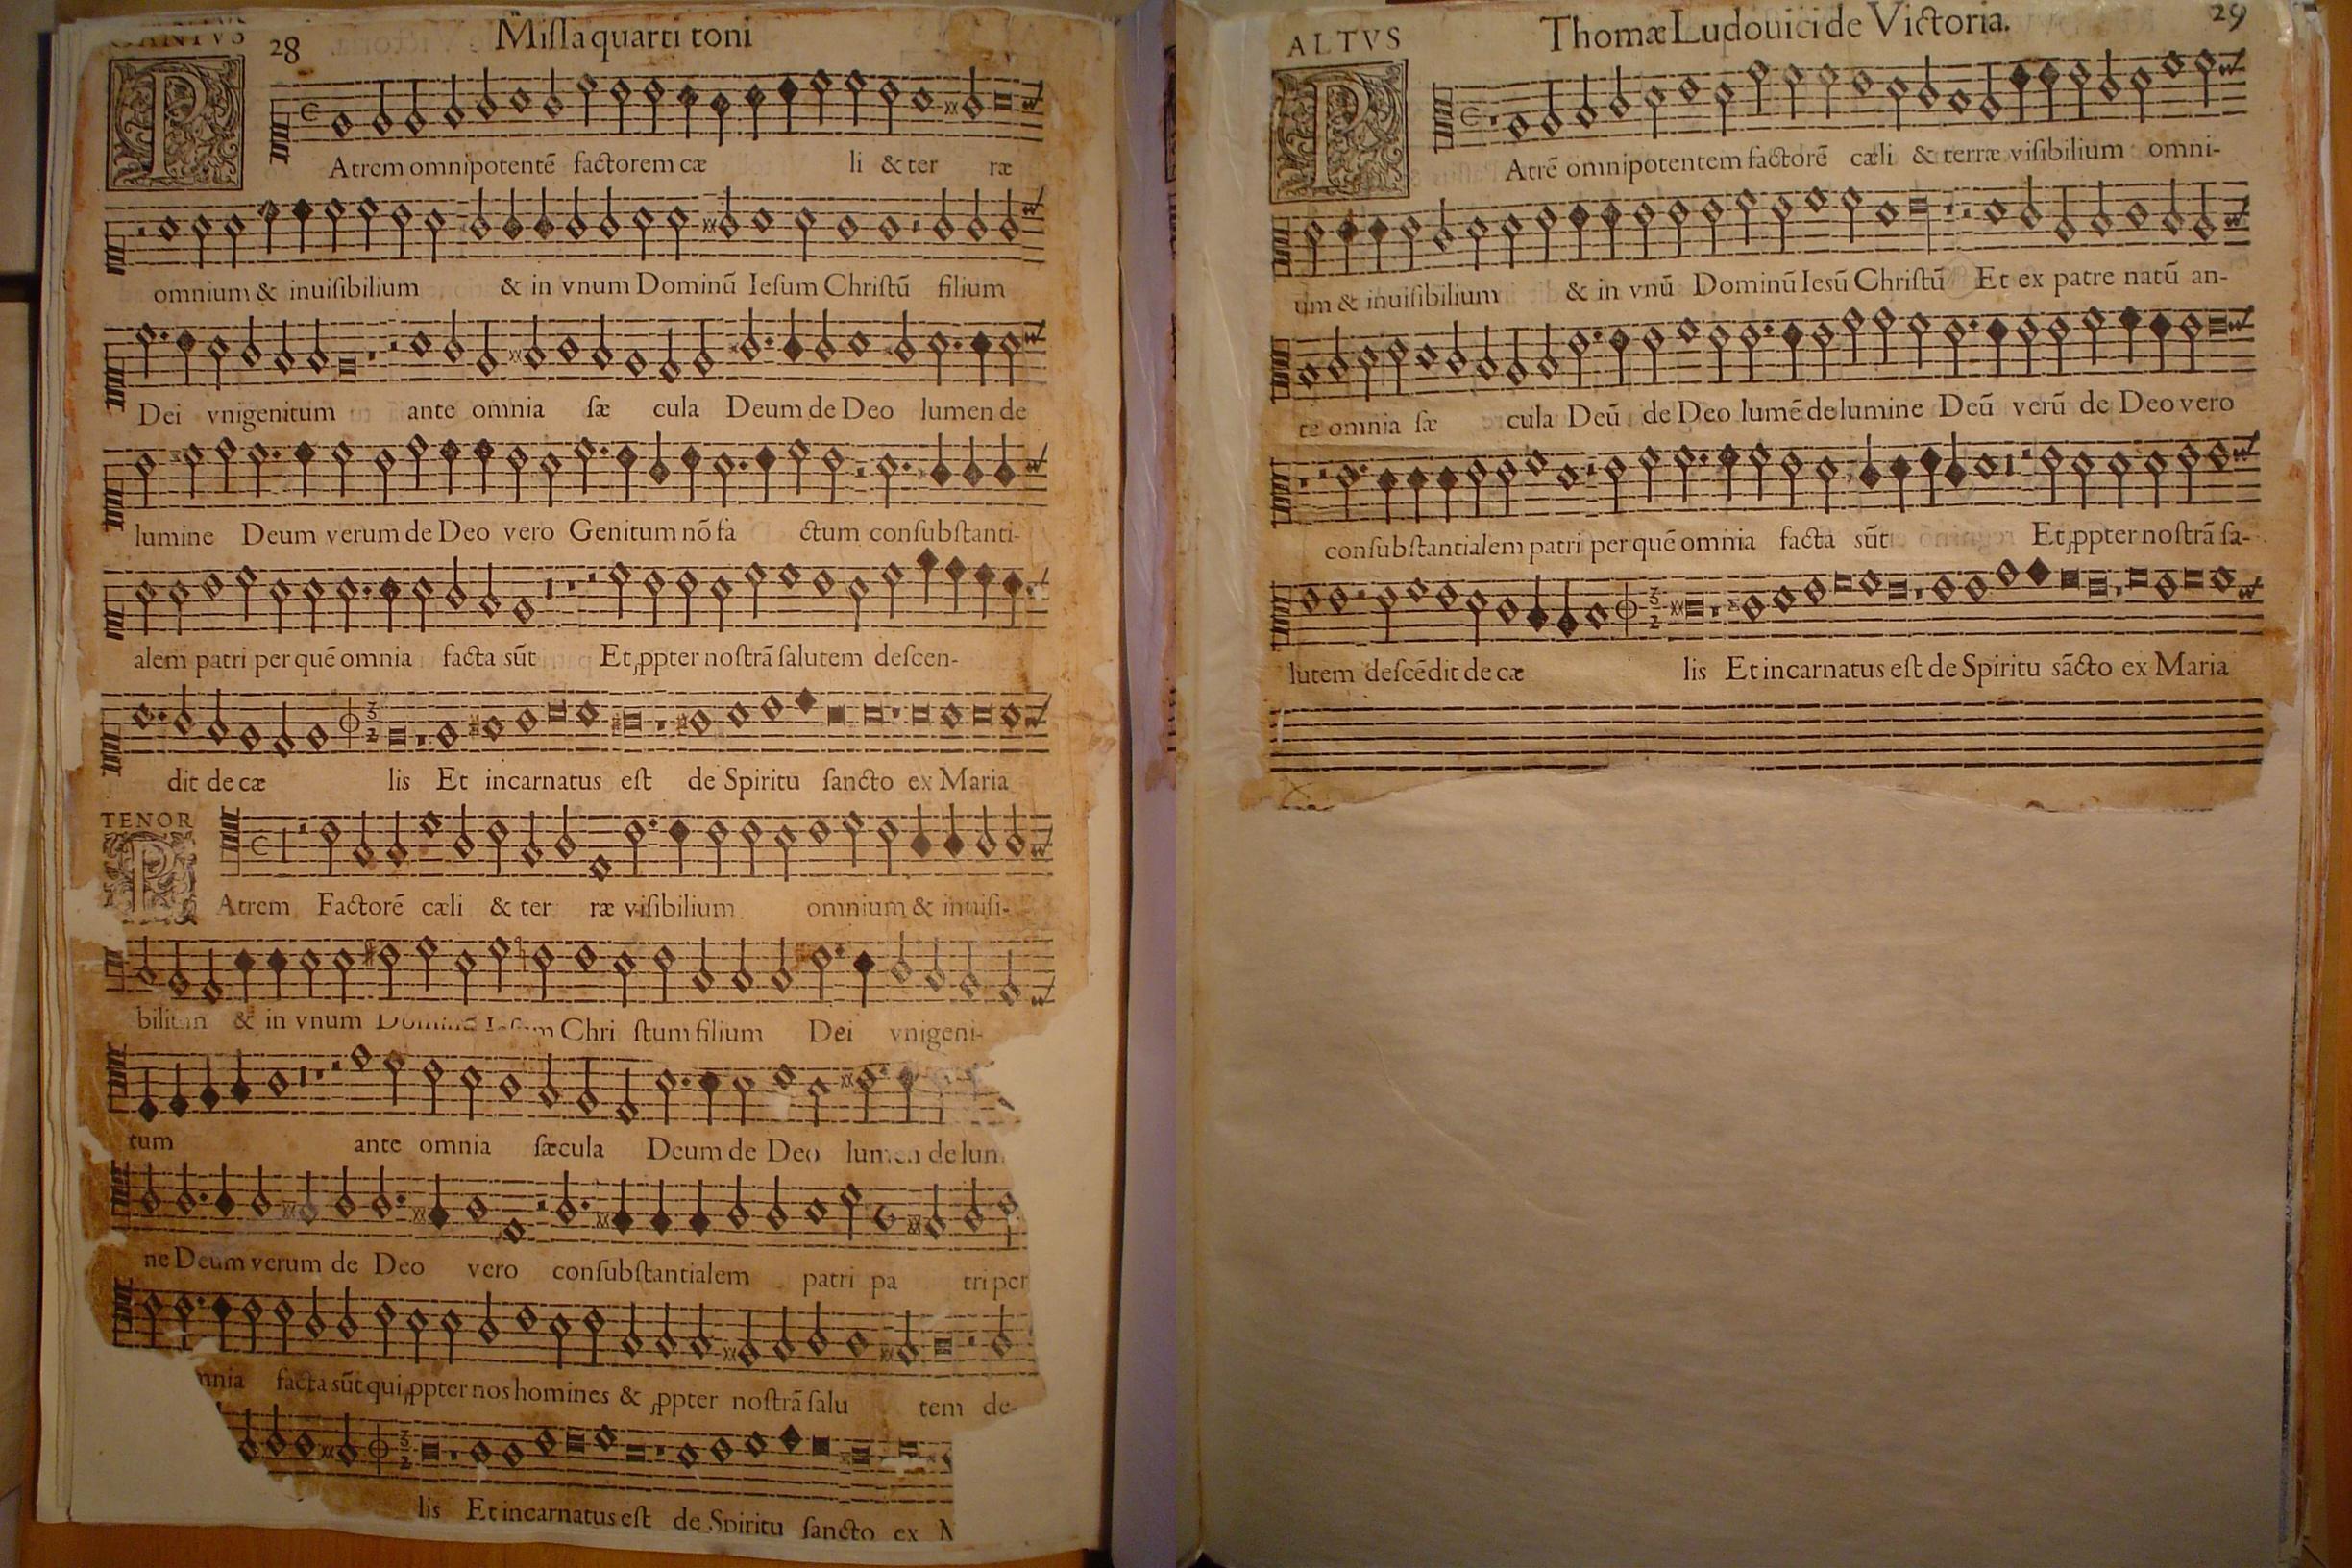 CANTVS
28
Missa quarti toni
P
Atrem omnipotentē factorem cæ li & ter ræ
omnium & inuisibilium & in vnum Dominū Iesum Christū filium
Dei vnigenitum ante omnia sæ cula Deum de Deo lumen de
lumine Deum verum de Deo vero Genitum nō fa ctum consubstanti-
alem patri per quē omnia facta sūt Et ꝓpter nostrā salutem descen-
dit de cæ lis Et incarnatus est de Spiritu sancto ex Maria
TENOR
P
Atrem Factorē cæli & ter ræ visibilium omnium & inuisi-
bilium & in vnum Dominū Iesum Chri stum filium Dei vnigeni-
tum ante omnia sæcula Deum de Deo lumen de lum
ne Deum verum de Deo vero consubstantialem patri pa tri per
mnia facta sūt qui ꝓpter nos homines & ꝓpter nostrā salu tem de-
lis Et incarnatus est de Spiritu sancto ex M
29
Thomæ Ludouici de Victoria.
ALTVS
P
Atrē omnipotentem factorē cæli & terræ visibilium omni-
um & inuisibilium & in vnū Dominū Iesū Christū Et ex patre natū an-
te omnia sæ cula Deū de Deo lumē de lumine Deū verū de Deo vero
consubstantialem patri per quē omnia facta sūt Et ꝓpter nostrā sa-
lutem descēdit de cæ lis Et incarnatus est de Spiritu sācto ex Maria